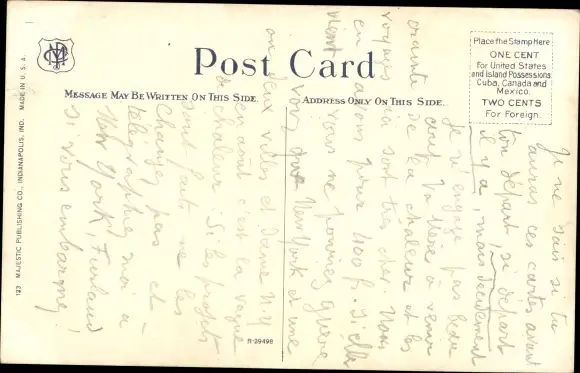 Post Card
MESSAGE MAY BE WRITTEN ON THIS SIDE.
ADDRESS ONLY ON THIS SIDE.
Place the Stamp Here
ONE CENT
For United States
and Island Possessions
Cuba, Canada and
Mexico.
TWO CENTS
For Foreign.
123 MAJESTIC PUBLISHING CO., INDIANAPOLIS, IND. MADE IN U. S. A.
R-29498
Je ne sais si tu
auras ces cartes avant
ton départ, si départ
il y a, mais
Je n'engage pas
à venir
de la chaleur et les
voyages ici sont très cher. Nous
en avons pour 400 f. si elle
vient vous ne pourriez guère
voir que New York et une
ou deux villes et
en août c'est la vague
de chaleur. Si les projets
sont faits ne les
changez pas et
télégraphiez moi à
New York,
si vous embarquez!